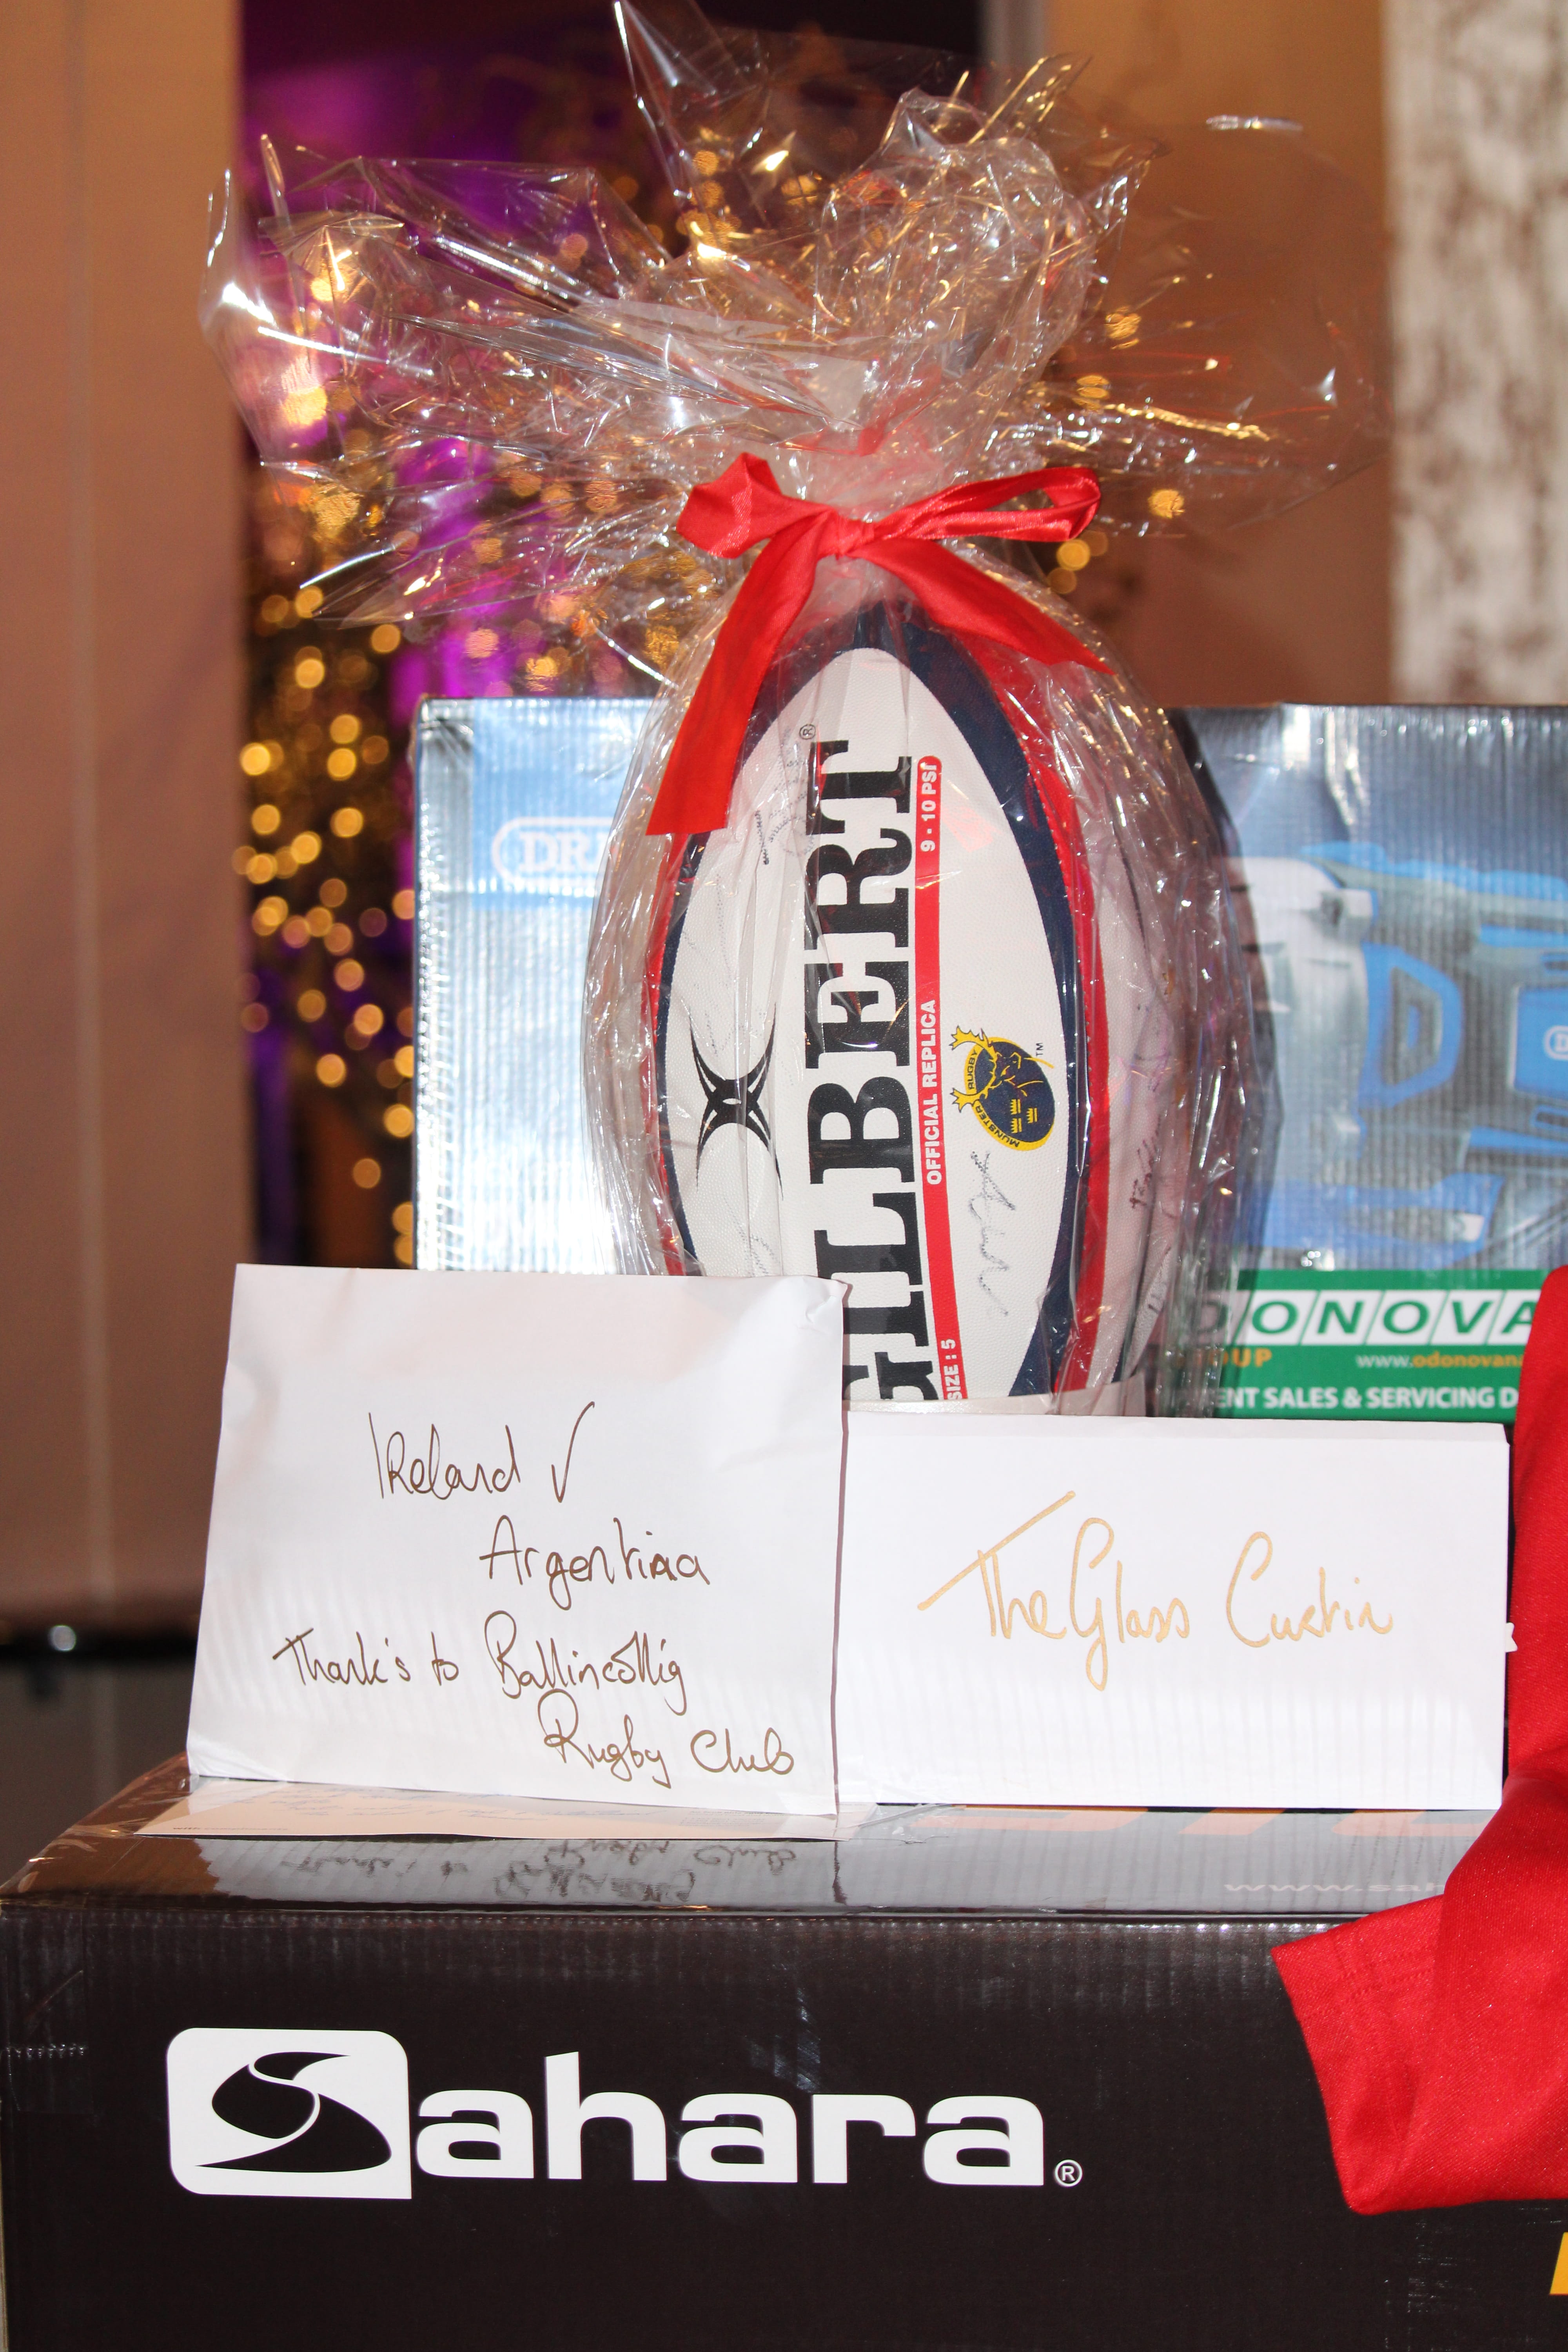 DRA
GILBERT
®
9 - 10 PSI
OFFICIAL REPLICA
SIZE : 5
MUNSTER RUGBY
TM
ONOVA
www.odonovan
ENT SALES & SERVICING D
Ireland V
Argentina
Thank's to Ballincollig
Rugby Club
The Glass Curtin
www.sah
Sahara®